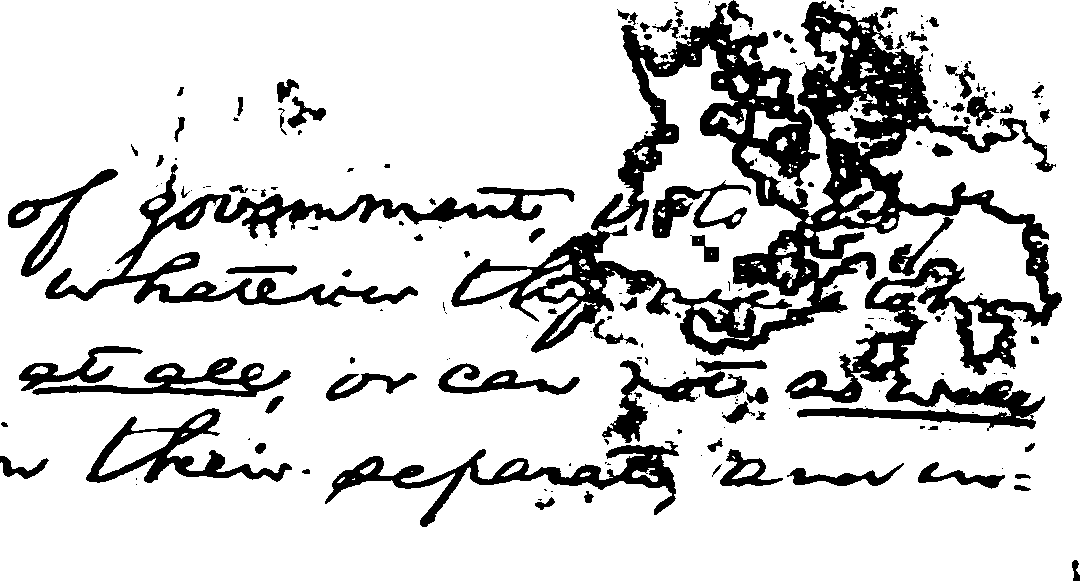 of government, is to do
whatever they need to
at all, or can not as well
in their separate and in=